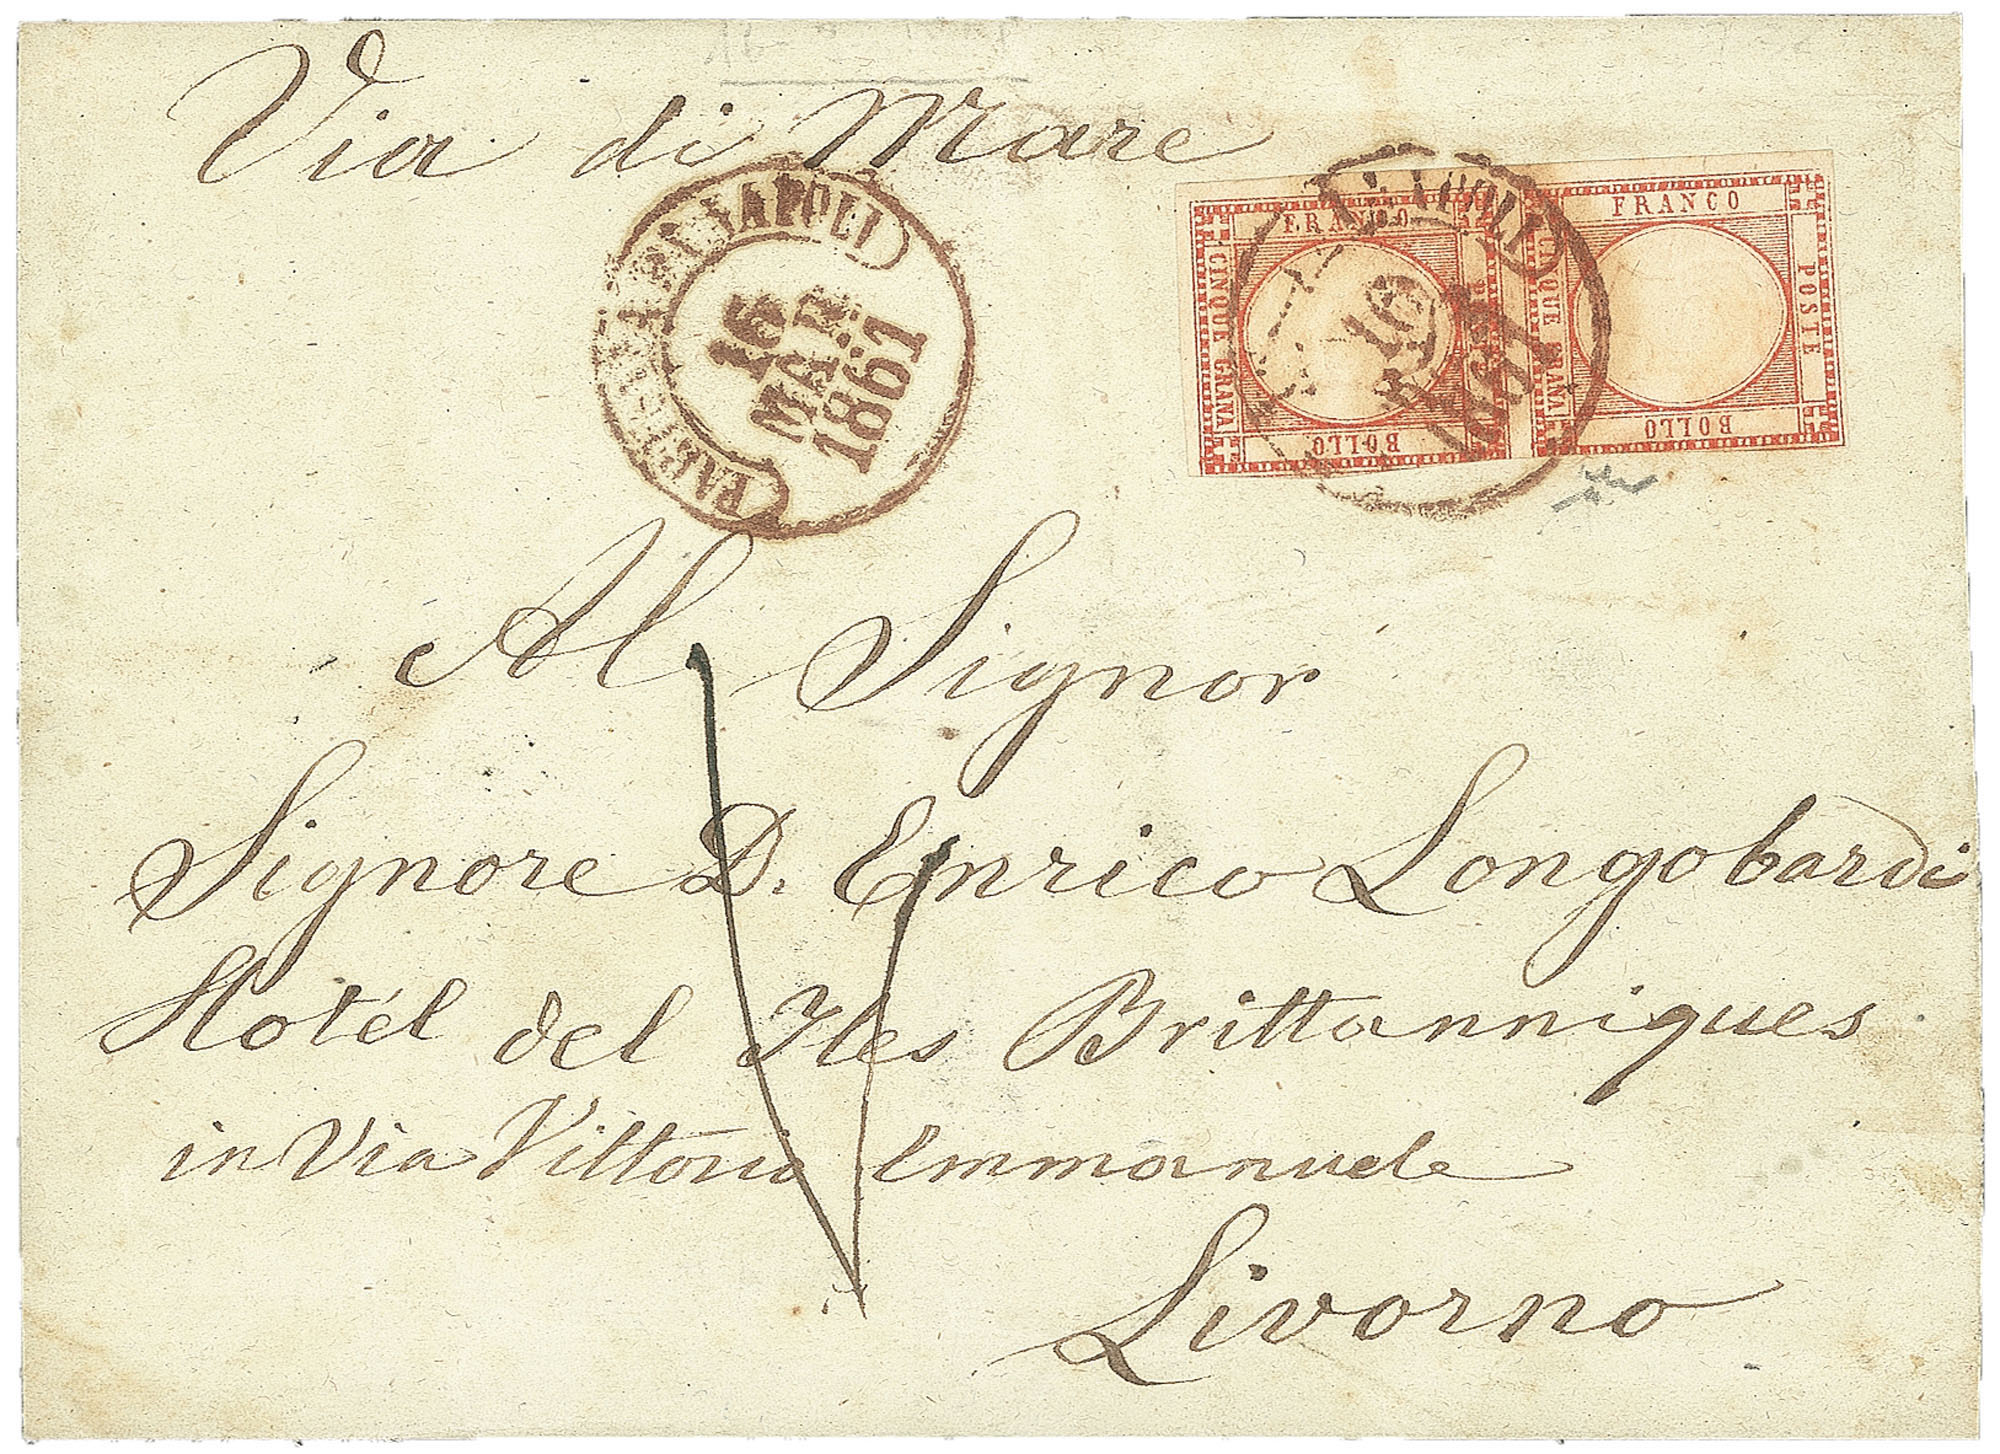 Via di Mare
NAPOLI
16
MAR
1861
FRANCO
CINQUE GRANA
BOLLO
FRANCO
CINQUE GRANA
POSTE
BOLLO
NAPOLI
16
1861
Al Signor
Signore D. Enrico Longobardi
Hotél del Iles Brittanniques
in Via Vittorio Emmanuele
Livorno